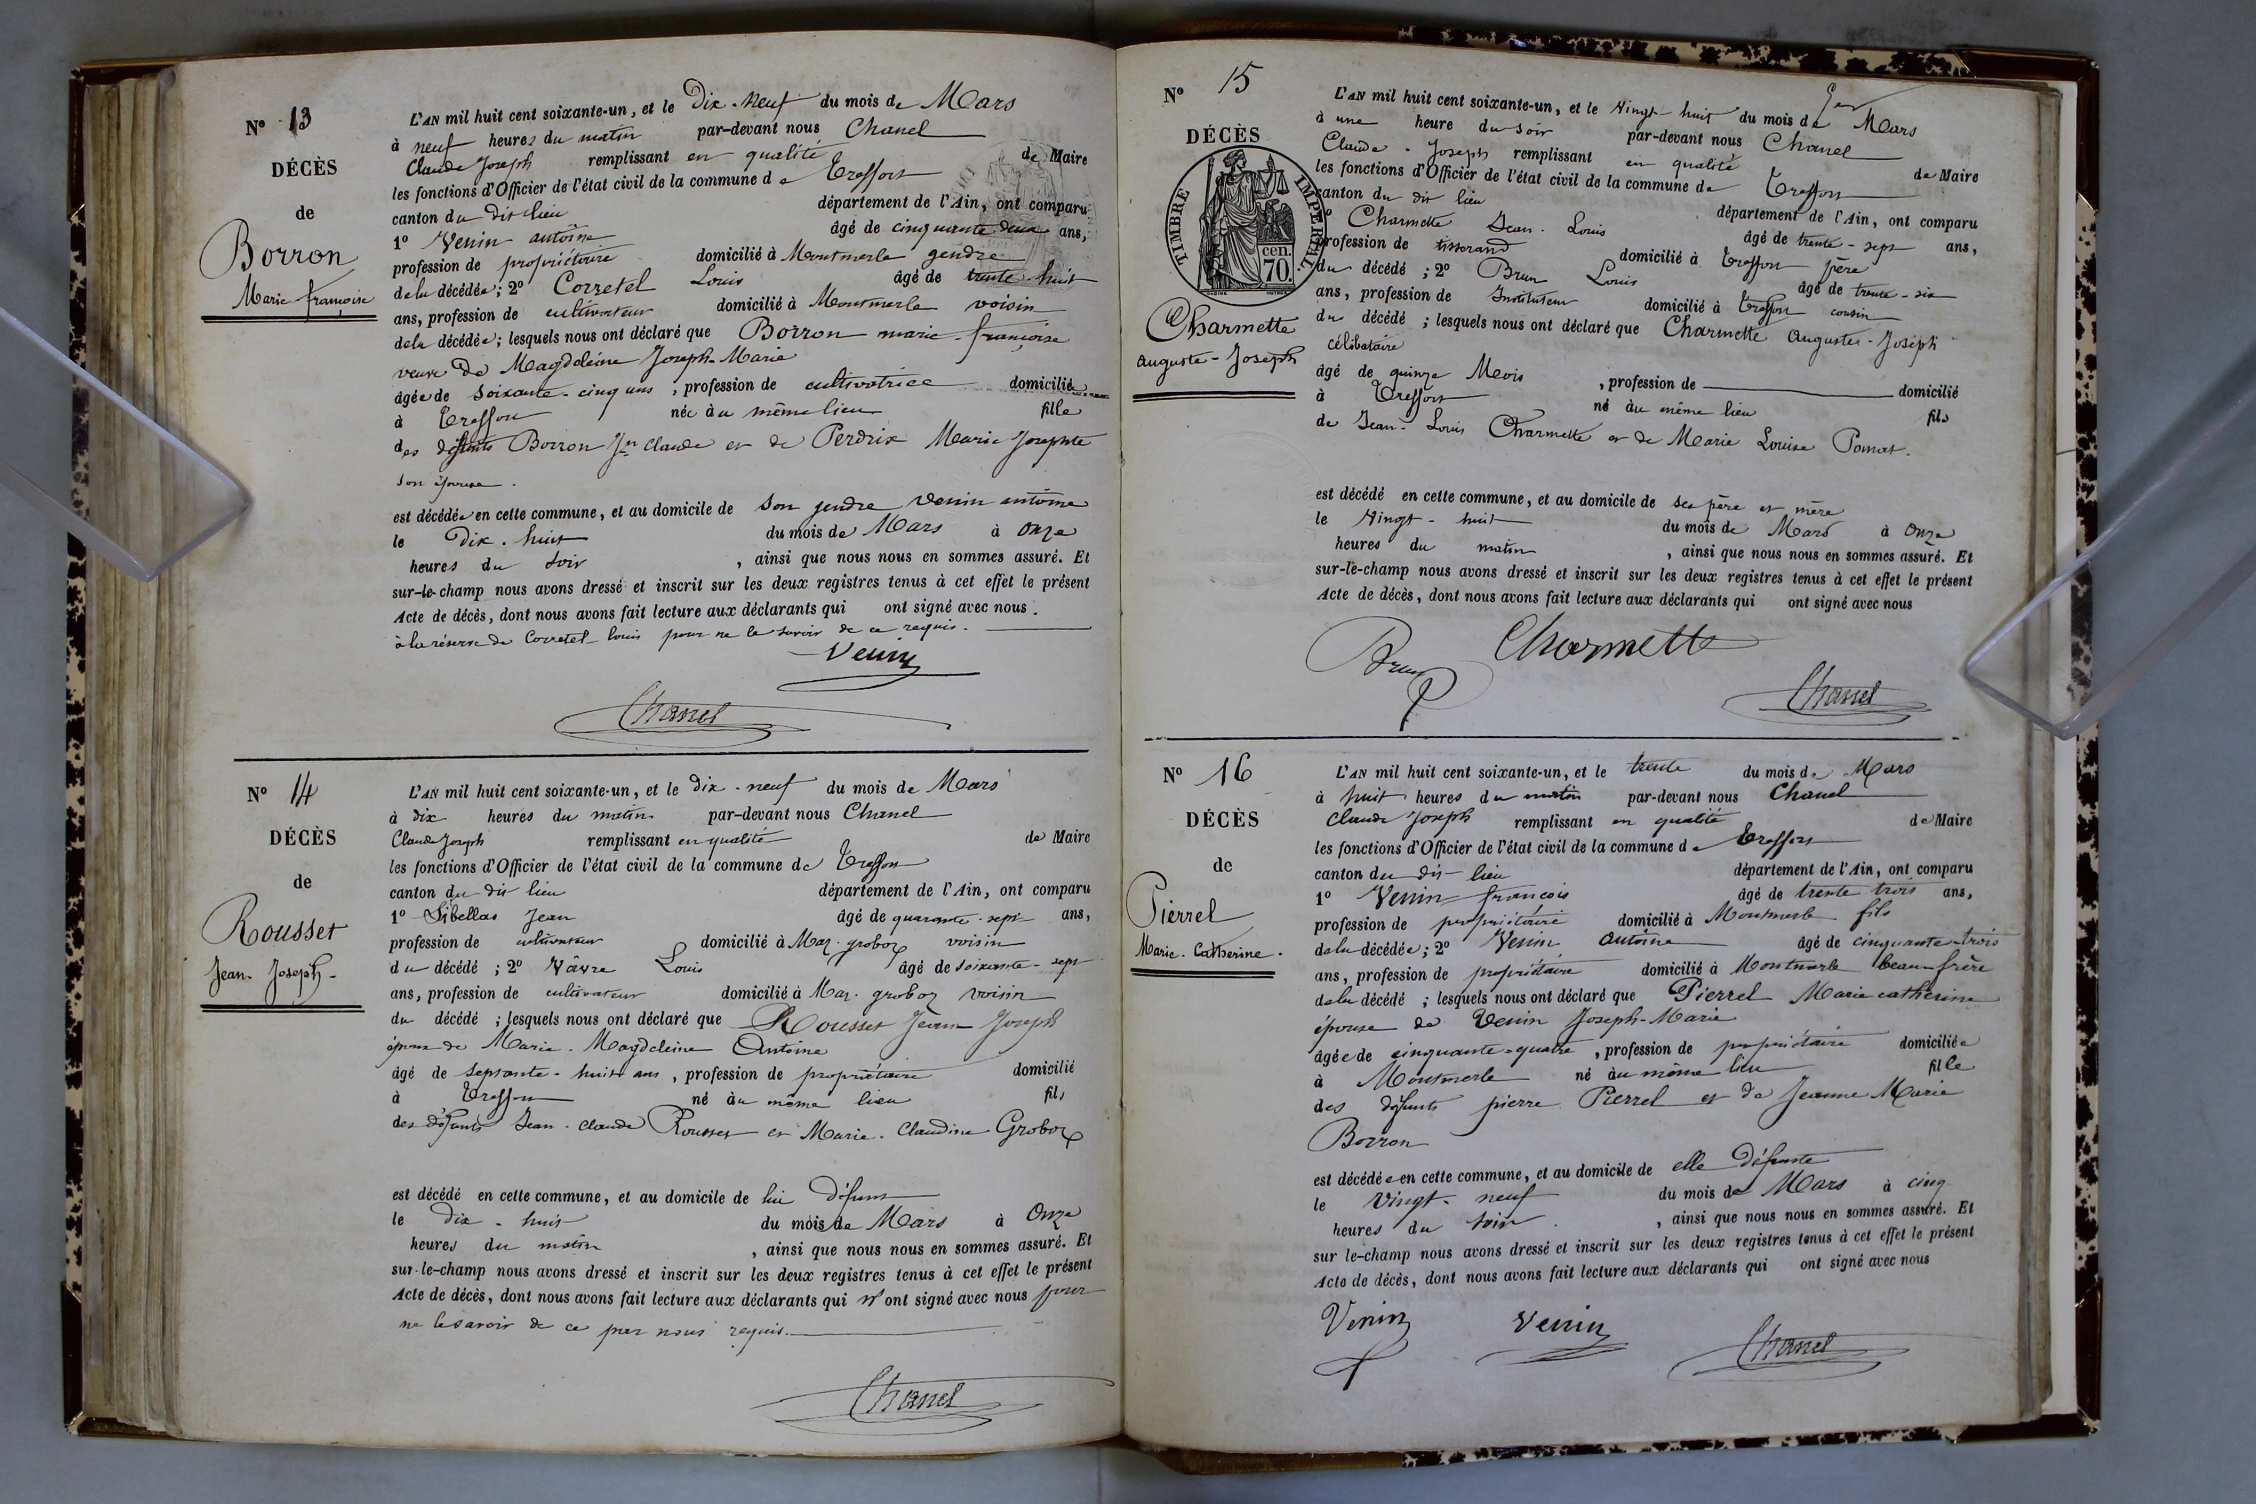 N° 13
DÉCÈS
de
Borron
Marie françoise
L'AN mil huit cent soixante-un, et le Dix-Neuf du mois de Mars
à neuf heures du matin par-devant nous Chanel
Claude Joseph remplissant en qualité de Maire
les fonctions d'Officier de l'état civil de la commune de Treffort
canton du dit lieu département de l'Ain, ont comparu
1° Venin antoine âgé de cinquante deux ans,
profession de propriétaire domicilié à Montmerle gendre
de la décédée; 2° Corretel Louis âgé de trente-huit
ans, profession de cultivateur domicilié à Montmerle voisin
de la décédée; lesquels nous ont déclaré que Borron marie-françoise
veuve de Magdeleine Joseph-Marie
âgée de soixante-cinq ans, profession de cultivatrice domiciliée
à Treffort née au même lieu fille
des défunts Borron Jn Claude et de Perdrix Marie Josephte
son épouse.
est décédée en cette commune, et au domicile de son gendre Venin antoine
le Dix-huit du mois de Mars à onze
heures du soir, ainsi que nous nous en sommes assuré. Et
sur-le-champ nous avons dressé et inscrit sur les deux registres tenus à cet effet le présent
Acte de décès, dont nous avons fait lecture aux déclarants qui ont signé avec nous.
à la réserve de Corretel louis pour ne le savoir de ce requis.
Venin
Chanel
N° 14
DÉCÈS
de
Rousset
Jean-Joseph-
L'AN mil huit cent soixante-un, et le dix-neuf du mois de Mars
à dix heures du matin par-devant nous Chanel
Claude Joseph remplissant en qualité de Maire
les fonctions d'Officier de l'état civil de la commune de Treffort
canton du dit lieu département de l'Ain, ont comparu
1° Sibellas Jean âgé de quarante-sept ans,
profession de cultivateur domicilié à Maz-groboz voisin
du décédé; 2° Vâvre Louis âgé de soixante-sept
ans, profession de cultivateur domicilié à Maz-groboz voisin
du décédé; lesquels nous ont déclaré que Rousset Jean Joseph
époux de Marie-Magdeleine Antoine
âgé de septante-huit ans, profession de propriétaire domicilié
à Treffort né au même lieu fils
des défunts Jean-claude Rousset et Marie-Claudine Groboz
est décédé en cette commune, et au domicile de lui défunt
le dix-huit du mois de Mars à Onze
heures du matin, ainsi que nous nous en sommes assuré. Et
sur-le-champ nous avons dressé et inscrit sur les deux registres tenus à cet effet le présent
Acte de décès, dont nous avons fait lecture aux déclarants qui n'ont signé avec nous pour
ne le savoir de ce par nous requis.
Chanel
N° 15
DÉCÈS
TIMBRE IMPÉRIAL.
cen. 70.
Charmette
auguste-Joseph
L'AN mil huit cent soixante-un, et le Vingt huit du mois de Mars
à une heure du soir par-devant nous Chanel
Claude-Joseph remplissant en qualité de Maire
les fonctions d'Officier de l'état civil de la commune de Treffort
canton du dit lieu département de l'Ain, ont comparu
Charmette Jean-Louis âgé de trente-sept ans,
profession de tisserand domicilié à Treffort père
du décédé; 2° Brun Louis âgé de trente-six
ans, profession de Instituteur domicilié à Treffort cousin
du décédé; lesquels nous ont déclaré que Charmette Auguste-Joseph
célibataire
âgé de quinze Mois, profession de domicilié
à Treffort né au même lieu fils
de Jean-Louis Charmette et de Marie Louise
est décédé en cette commune, et au domicile de ses père et mère
le Vingt-huit du mois de Mars à onze
heures du matin, ainsi que nous nous en sommes assuré. Et
sur-le-champ nous avons dressé et inscrit sur les deux registres tenus à cet effet le présent
Acte de décès, dont nous avons fait lecture aux déclarants qui ont signé avec nous
Brun Charmette
Chanel
N° 16
DÉCÈS
de
Pierrel
Marie-Catherine.
L'AN mil huit cent soixante-un, et le trente du mois de Mars
à huit heures du matin par-devant nous Chanel
Claude Joseph remplissant en qualité de Maire
les fonctions d'Officier de l'état civil de la commune de Treffort
canton du dit lieu département de l'Ain, ont comparu
1° Venin françois âgé de trente trois ans,
profession de propriétaire domicilié à Montmerle fils
de la décédée; 2° Venin antoine âgé de cinquante-trois
ans, profession de propriétaire domicilié à Montmerle beau-frère
de la décédé; lesquels nous ont déclaré que Pierrel Marie catherine
épouse de Venin Joseph-Marie
âgée de cinquante-quatre, profession de propriétaire domiciliée
à Montmerle né au même lieu fille
des défunts pierre Pierrel et de Jeanne Marie
Borron
est décédée en cette commune, et au domicile de elle défunte
le Vingt-neuf du mois de Mars à cinq
heures du soir, ainsi que nous nous en sommes assuré. Et
sur le-champ nous avons dressé et inscrit sur les deux registres tenus à cet effet le présent
Acte de décès, dont nous avons fait lecture aux déclarants qui ont signé avec nous
Venin Venin Chanel